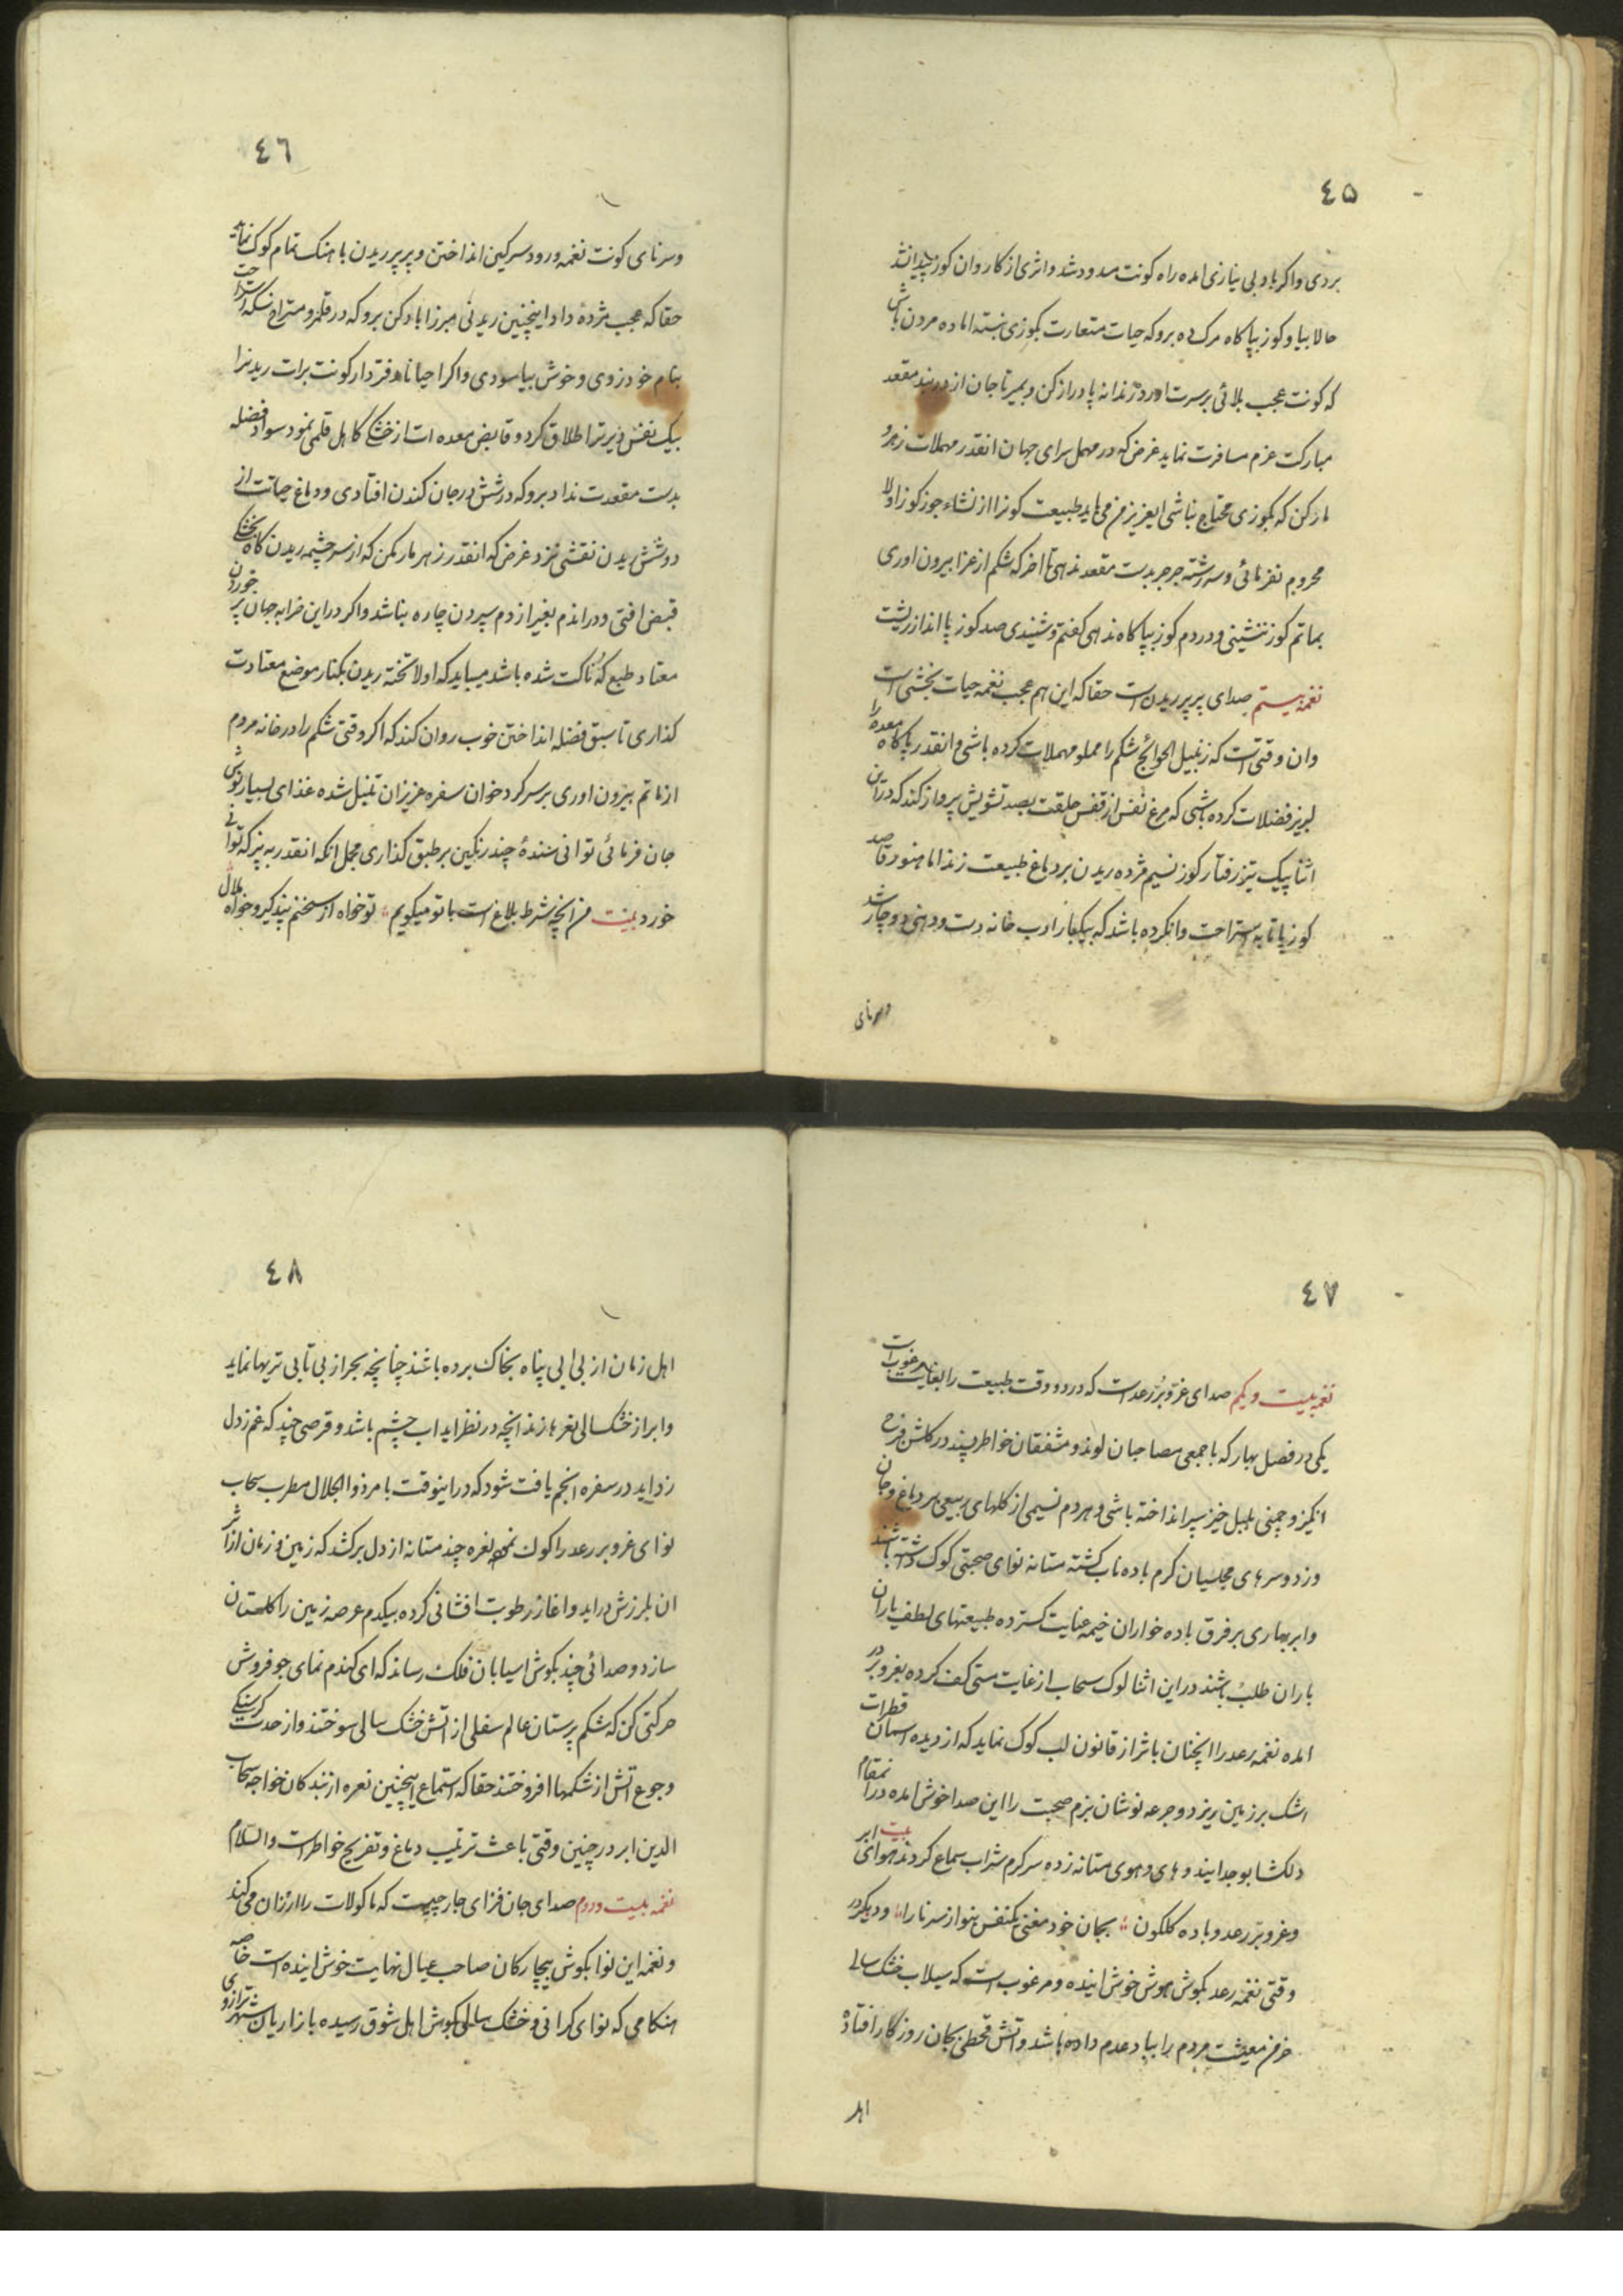 ٤۵
بردی واکر باد بی نیازی امده راه کونت مسدود شد واثری از کاروان کوز
حالا بیا وکوز بپا کاه مرک ده بروکه حیات متعارت بکوزی بسته اماده مردن باش
که کونت عجب بلائی بر سرت اورد زندانه پا دراز کن وبمیر تا جان از در بند مقعد
مبارکت عزم مسافرت نماید غرض که در مهمل سرای جهان انقدر مهملات زهر و
مار کن که بکوزی محتاج نباشی ایعزیز من می باید طبیعت کونرا از نشاء جوز کوز اولا
محروم نفرمائی وسر رشته جر جر بدست مقعد ندهی تا اخر که شکم از عزا بیرون اوری
بماتم کوز ننشینی ودر دم کوز بپا کاه ندهی کفتم وشنیدی صد کوز پا انداز ریشت
نغمه بیستم صدای پر پر ریدن است حقا که این هم عجب نغمه حیات بخشی است
وان وقتی است که زنبیل الحوائج شکم را مملو مهملات کرده باشی وانقدر پا کاه معده را
لبریز فضلات کرده باشی که مرغ نفس از قفس حلقت بصد تشویش پرواز کند که در این
اثنا پیک تیز رفتار کوز نسیم مژده ریدن بر دماغ طبیعت زند اما هنوز قاصد
کوز پا تا به استراحت وا نکرده باشد که بیکبار ادب خانه دست ودهنی دوچار شد
وسرنای
٤٦
وسرنای کونت نغمه ورود سرکین انداختن وپر پر ریدن با هنک تمام کوک نماید
حقا که عجب مژدۀ داد اینچنین ریدنی میرزا باد کن بروکه در قلمرو مستراح سکه استراحت
بنام خود زوی وخوش بیاسودی واکر احیانا دفتردار کونت برات ریدنرا
بیک نفس دیرتر اطلاق کرد وقابض معده ات از خشکی کاهل قلمی نمود سواد فضله
بدست مقعدت نداد بروکه در شش در جان کندن افتادی ودماغ حیاتت از
دو شش ریدن نقشی نزد غرض که انقدر زهر مار مکن که از سر چشمه ریدن کاه بخشکی
قبض افتی ودر اندم بغیر از دم سپردن چاره نباشد واکر در این خرابه جهان پر خوردن
معتاد طبع که ناکت شده باشد میباید که اولا تخته ریدن بکنار موضع معتادت
کذاری تا سبق فضله انداختن خوب روان کند که اکر وقتی شکم را در خانه مردم
از ماتم بیرون اوری بر سر کرد خوان سفره عزیزان تنبل شده غذای بسیار نوش
جان فرمائی توانی سندۀ چند رنکین بر طبق کذاری مجمل انکه انقدر به پز که توانی
خورد بیت من انچه شرط بلاغ است با تو میکویم تو خواه از سخنم پند کیر وخواه ملال
٤٧
نغمه بیست ویکم صدای غروبر رعد است که در دو وقت طبیعت را بغایت مرغوب است
یکی در فصل بهار که با جمعی مصاحبان لوند ومشفقان خاطر پسند در کلشن فرح
انکیز وچمنی بلبل خیز سپر انداخته باشی وهر دم نسیمی از کلهای ربیعی بر دماغ وجان
وزد وسرهای مجلسیان کرم باده ناب کشته مستانه نوای صحبتی کوک داشته باشند
وابر بهاری بر فرق باده خواران خیمه عنایت کسترده طبیعتهای لطف یاران
باران طلب باشند در این اثنا لوک سحاب از غایت مستی کف کرده بغروبر در
امده نغمه رعد را انچنان باثر از قانون لب کوک نماید که از دیده اسمان قطرات
اشک بر زمین ریزد وجرعه نوشان بزم صحبت را این صدا خوش امده در انمقام
دلکشا بوجد ایند وهای وهوی مستانه زده سرکرم شراب سماع کردند بیت هوای ابر
وغروبر رعد وباده کلکون بجان خود مغنی یکنفس بنواز سرنا را ودیکر در
وقتی نغمه رعد بکوش هوش خوش اینده ومرغوب است که سیلاب خشک سالی
خرمن معیشت مردم را بباد عدم داده باشد واتش قحطی بجان روزکار افتاده
اهل
٤٨
اهل زمان از بی ابی پناه بخاک برده باشند چنانچه بحر از بی تابی تریها نماید
وابر از خشکسالی نعرها زند انچه در نظر اید اب چشم باشد وقرصی چند که غم ز دل
زداید در سفره انجم یافت شود که در اینوقت بامر ذو الجلال مطرب سحاب
نوای غروبر رعد را کوک نموده نعره چند مستانه از دل برکشد که زمین وزمان از اثر
ان بلرزش دراید واغاز رطوبت افشانی کرده بیکدم عرصه زمین را کلستان
سازد وصدائی چند بکوش اسیابان فلک رساند که ای کندم نمای جو فروش
حرکتی کن که شکم پرستان عالم سفلی از اتش خشک سالی سوختند واز حدت کرسنکی
وجوع اتش از شکمها افروختند حقا که استماع اینچنین نعره از بندکان خواجه سحاب
الدین ابر در چنین وقتی باعث ترتیب دماغ وتفریح خاطر است والسلام
نغمه بیست ودوم صدای جان فزای جارچیست که ماکولات را ارزان می کند
ونغمه این نوا بکوش بیچارکان صاحب عیال نهایت خوش اینده است خاصه
هنکامی که نوای کرانی وخشک سالی بکوش اهل شوق رسیده بازاریان شهر ترازوی